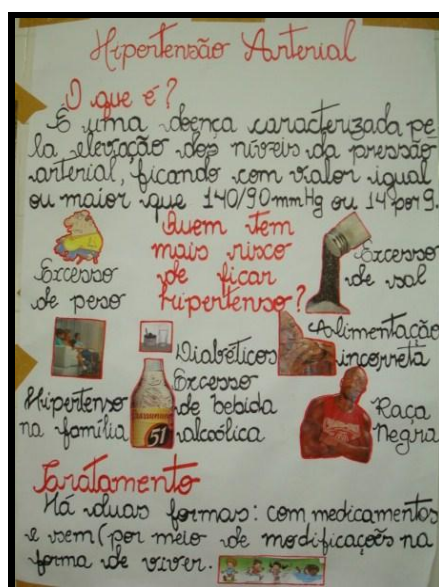 Hipertensão Arterial
O que é?
É uma doença caracterizada pe
la elevação dos níveis da pressão
arterial, ficando com valor igual
ou maior que 140/90mmHg ou 14 por 9.
Quem tem
mais risco
de ficar
hipertenso?
Excesso
de peso
Excesso
de sal
Diabéticos
Alimentação
incorreta
Hipertenso
na família
Excesso
de bebida
alcoólica
51
Raça
Negra
Taratamento
Há duas formas: com medicamentos
e sem (por meio de modificações na
forma de viver.